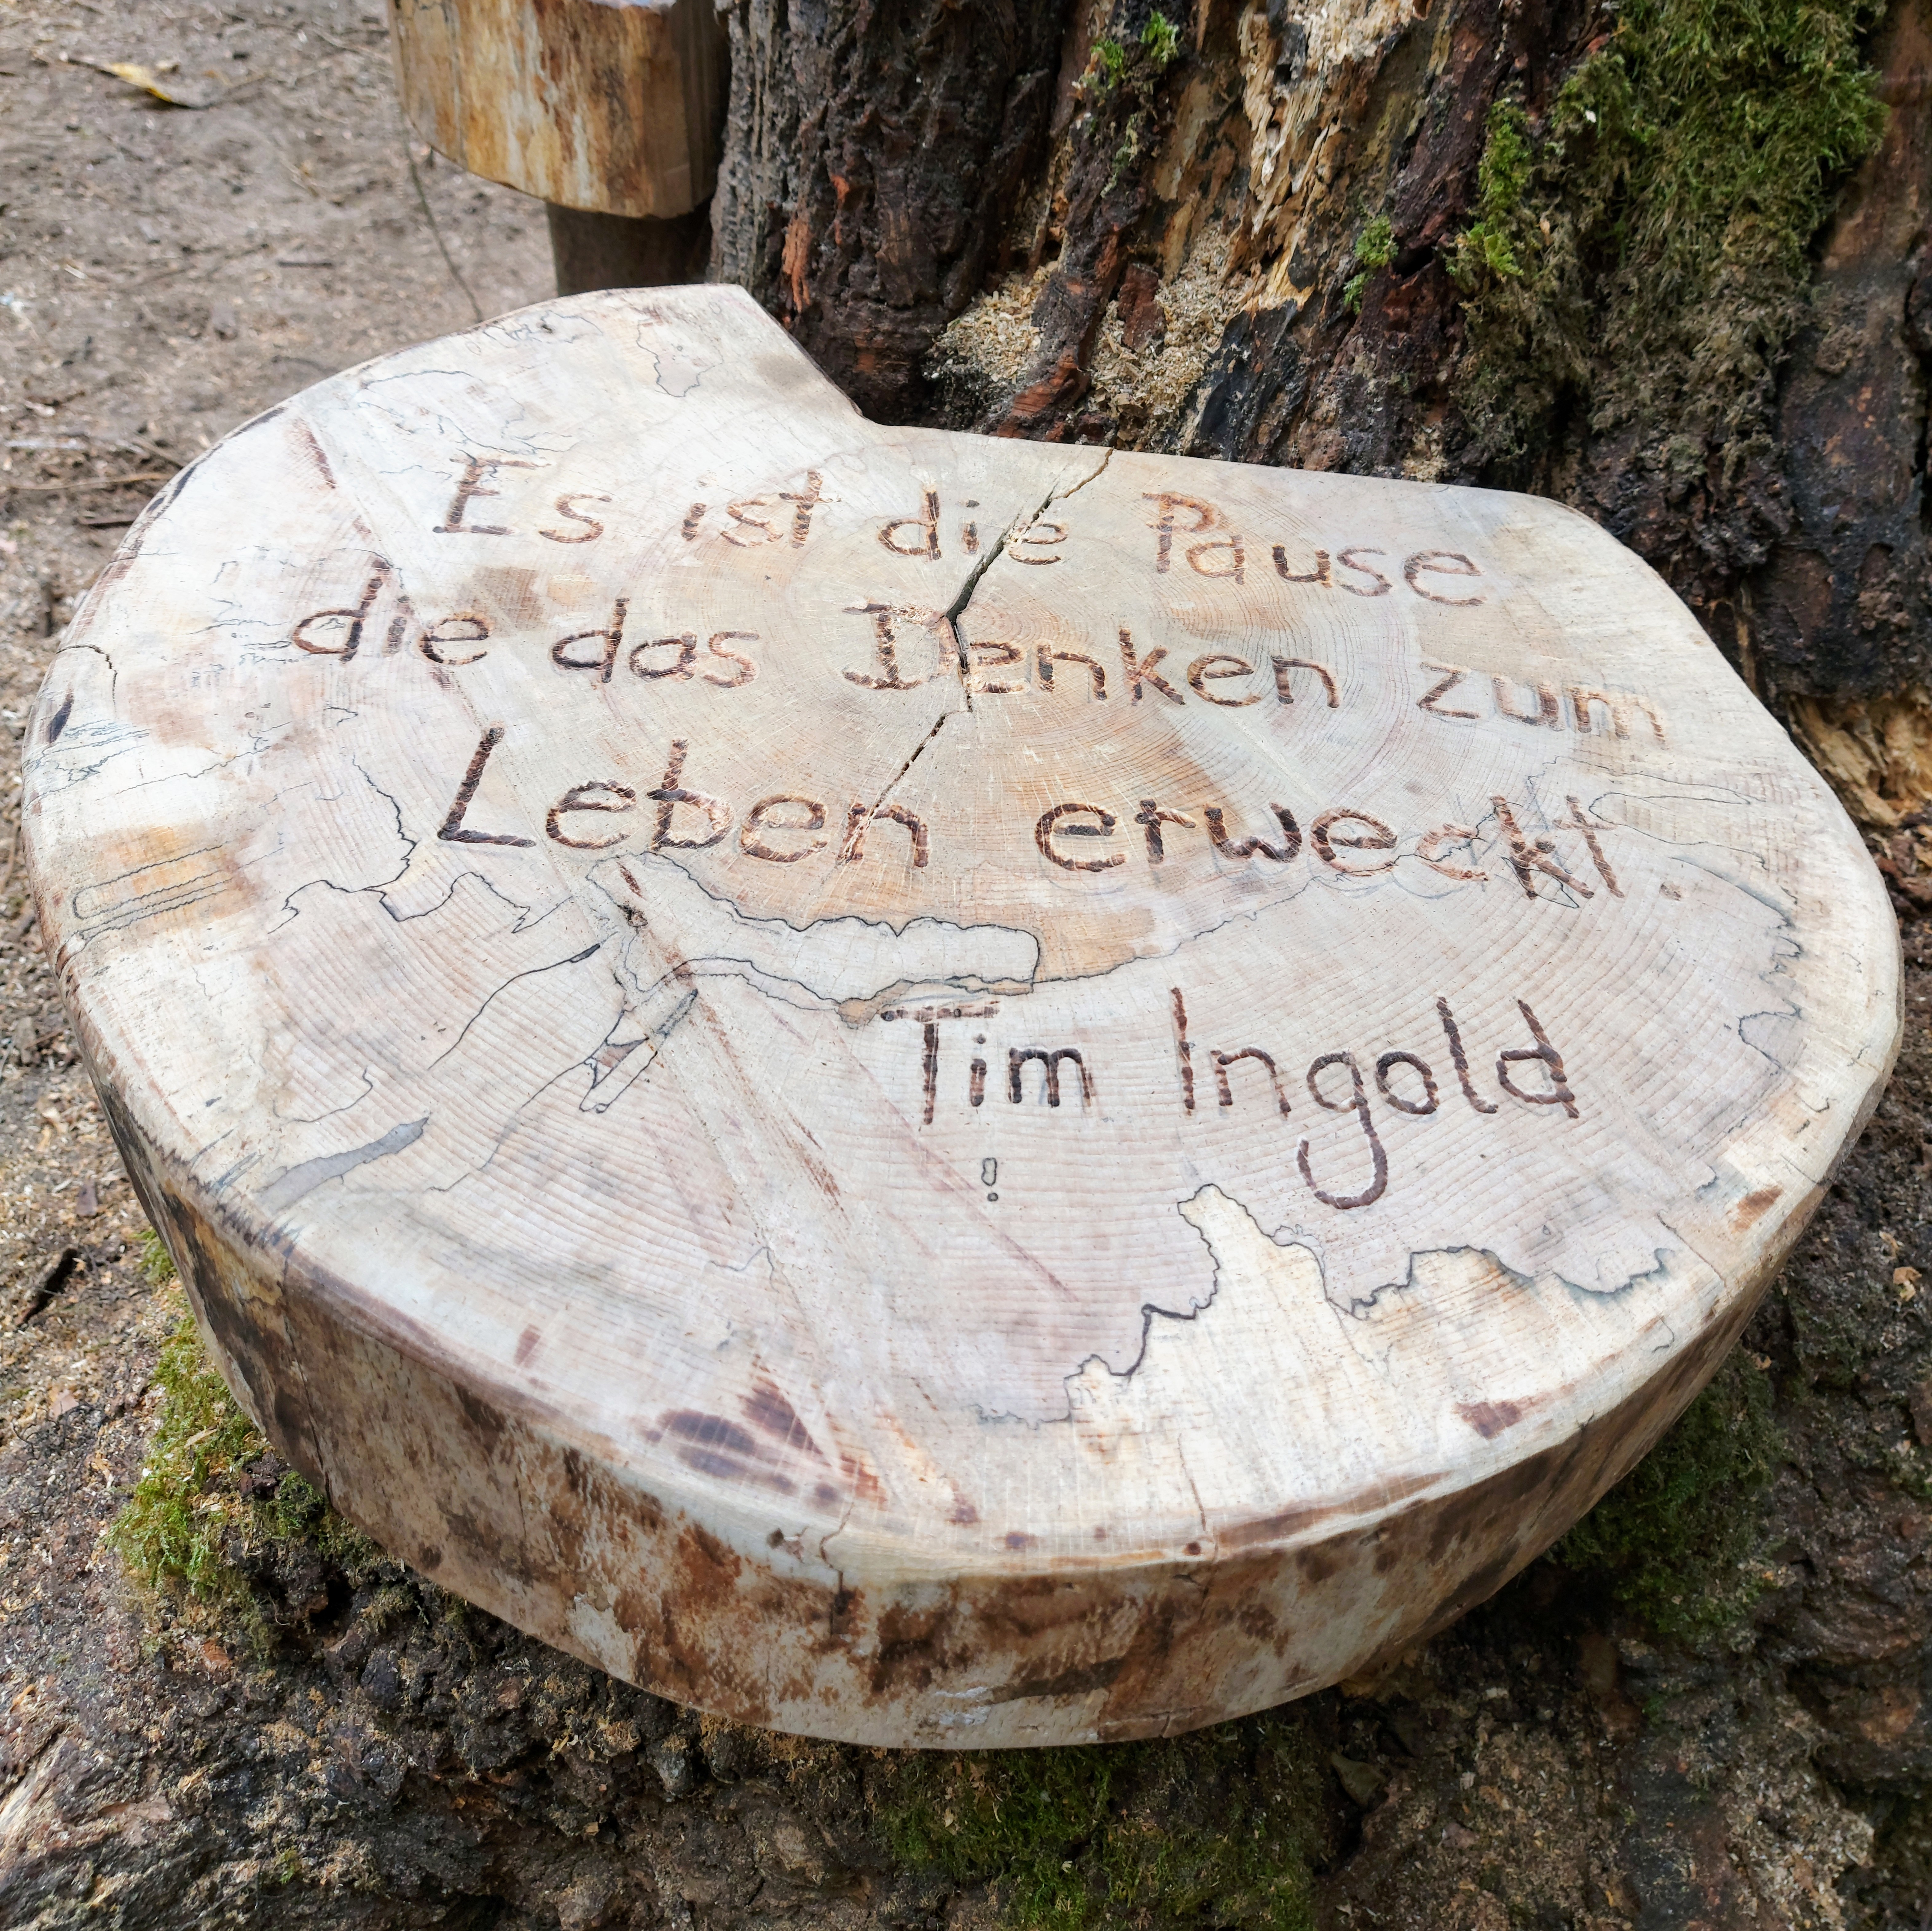 Es ist die Pause
die das Denken zum
Leben erweckt.
Tim Ingold